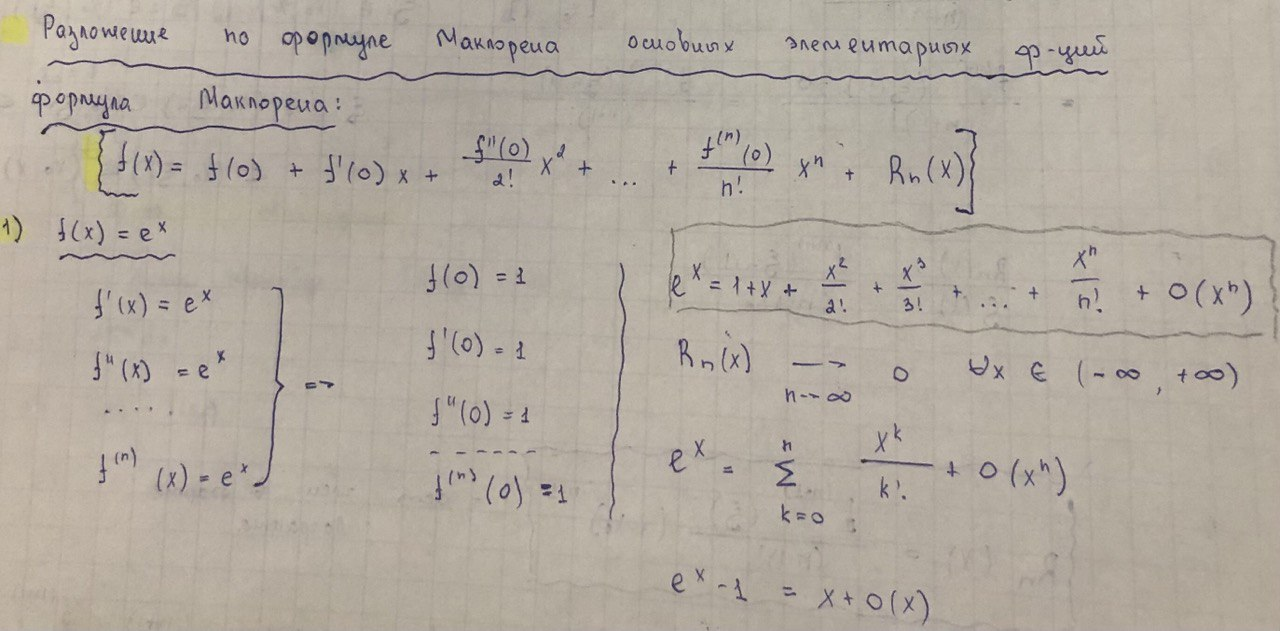 Разложение по формуле Маклорена основных элементарных ф-ций
формула Маклорена:
[f(x) = f(0) + f'(0) x + f''(0)/2! x² + ... + f⁽ⁿ⁾(0)/n! xⁿ + Rₙ(x)]
1) f(x) = eˣ
f'(x) = eˣ
f''(x) = eˣ
.....
f⁽ⁿ⁾(x) = eˣ
} =>
f(0) = 1
f'(0) = 1
f''(0) = 1
- - - - - -
f⁽ⁿ⁾(0) = 1
eˣ = 1 + x + x²/2! + x³/3! + ... + xⁿ/n! + o(xⁿ)
Rₙ(x) → 0 ∀x ∈ (-∞, +∞)
n→∞
eˣ = ∑ₖ₌₀ⁿ xᵏ/k! + o(xⁿ)
eˣ - 1 = x + o(x)